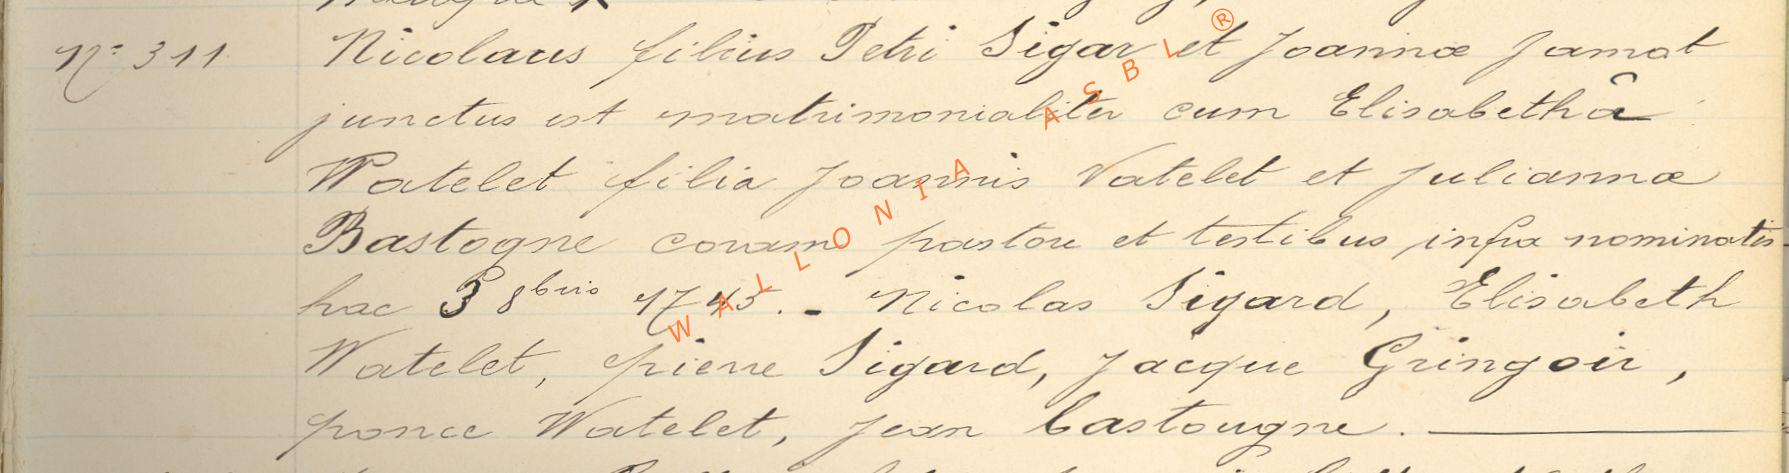 N° 311. Nicolaus filius Petri Sigar et Joannæ Jamot
junctus est matrimonialiter cum Elisabethâ
Watelet filia Joannis Vatelet et Juliannæ
Bastogne coram pastore et testibus infra nominatis
hac 3 8bris 1745. - Nicolas Sigard, Elisabeth
Watelet, pierre Sigard, Jacque Gringoir,
ponce Watelet, Jean Castougne.
WALLONIA ASBL ®